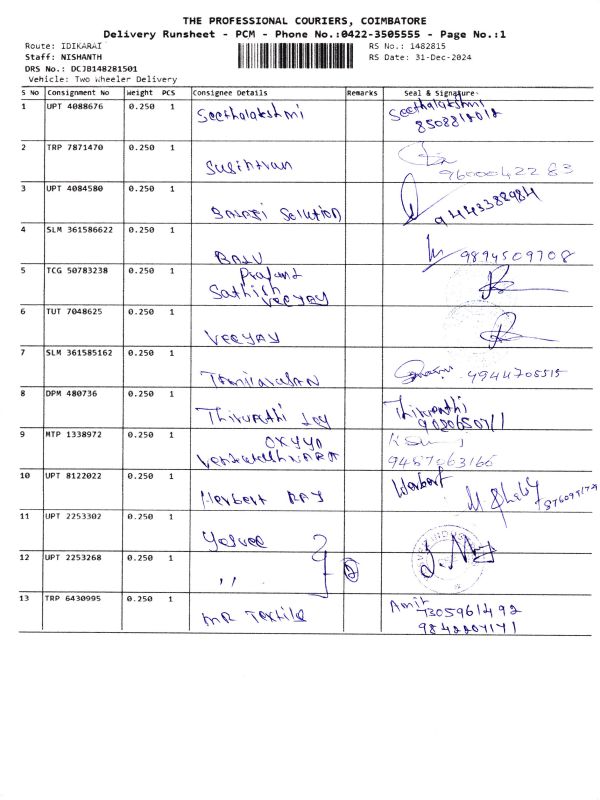 THE PROFESSIONAL COURIERS, COIMBATORE
Delivery Runsheet - PCM - Phone No.:0422-3505555 - Page No.:1
Route: IDIKARAI RS No.: 1482815
Staff: NISHANTH RS Date: 31-Dec-2024
DRS No.: DCJB148281501
Vehicle: Two Wheeler Delivery
S No Consignment No Weight PCS Consignee Details Remarks Seal & Signature
1 UPT 4088676 0.250 1 Seethalakshmi Seethalakshmi
8508812012
2 TRP 7871470 0.250 1
9600042283
3 UPT 4084580 0.250 1 Balaji Solution 9443382984
4 SLM 361586622 0.250 1 BALU 9894509708
5 TCG 50783238 0.250 1
Sathish
VEEYAY
6 TUT 7048625 0.250 1 VEEYAY
7 SLM 361585162 0.250 1 4944705515
8 DPM 480736 0.250 1 Thirupathi Thirupathi
9 MTP 1338972 0.250 1 OXYYO
9487063166
10 UPT 8122022 0.250 1 Herbert RAY Herbert
11 UPT 2253302 0.250 1
12 UPT 2253268 0.250 1 ,, 2
13 TRP 6430995 0.250 1 MR Textile Amit
7305961492
9842207171